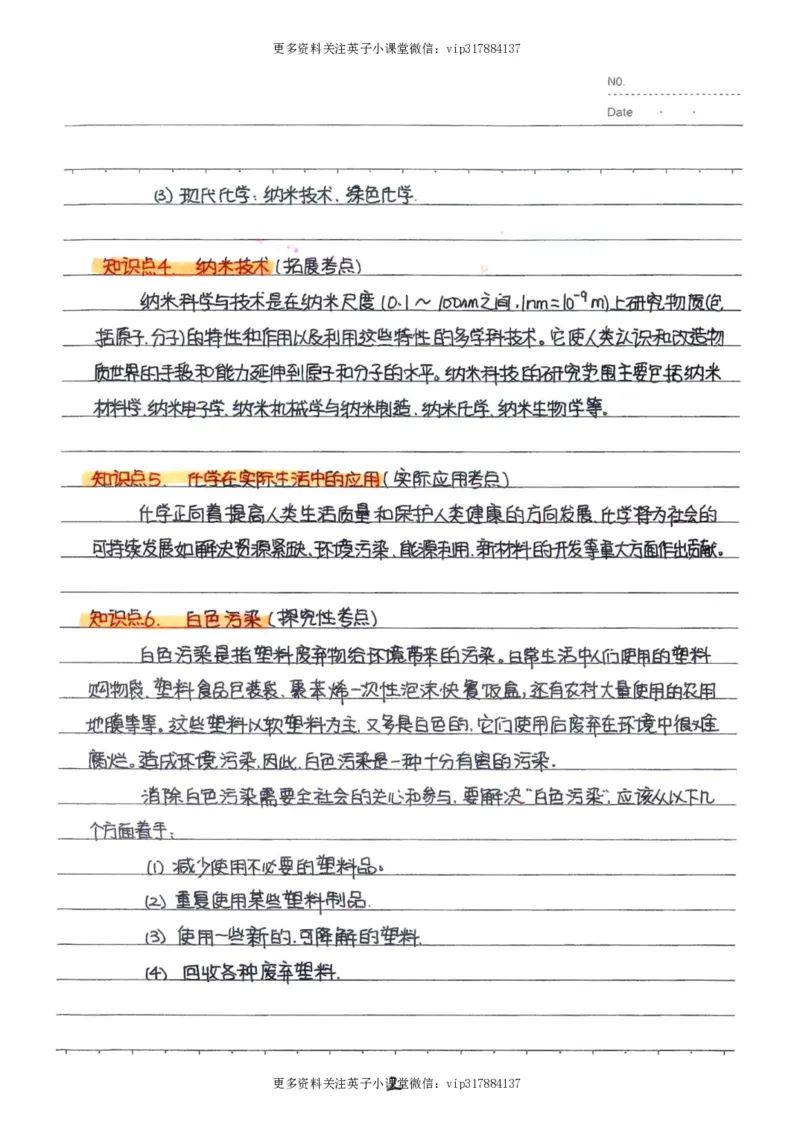 更多资料关注英子小课堂微信：vip317884137
NO.
Date · ·
(3) 现代化学：纳米技术、绿色化学.
知识点4. 纳米技术(拓展考点)
纳米科学与技术是在纳米尺度(0.1～100nm之间,1nm=10⁻⁹m)上研究物质(包
括原子.分子)的特性和作用以及利用这些特性的多学科技术。它使人类认识和改造物
质世界的手段和能力延伸到原子和分子的水平。纳米科技的研究范围主要包括纳米
材料学.纳米电子学、纳米机械学与纳米制造、纳米化学、纳米生物学等。
知识点5. 化学在实际生活中的应用(实际应用考点)
化学正向着提高人类生活质量和保护人类健康的方向发展.化学将为社会的
可持续发展如解决资源紧缺、环境污染、能源利用.新材料的开发等重大方面作出贡献。
知识点6. 白色污染(探究性考点)
白色污染是指塑料废弃物给环境带来的污染。日常生活中人们使用的塑料
购物袋、塑料食品包装袋、聚苯烯一次性泡沫快餐饭盒,还有农村大量使用的农用
地膜等等。这些塑料以软塑料为主,又多是白色的,它们使用后废弃在环境中很难
腐烂。造成环境污染,因此,白色污染是一种十分有害的污染.
消除白色污染需要全社会的关心和参与,要解决“白色污染”,应该从以下几
个方面着手：
(1) 减少使用不必要的塑料品。
(2) 重复使用某些塑料制品.
(3) 使用一些新的.可降解的塑料.
(4) 回收各种废弃塑料.
2
更多资料关注英子小课堂微信：vip317884137